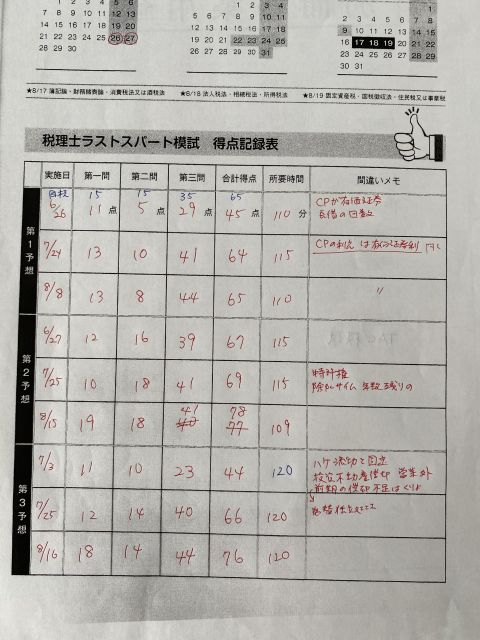 5 6
7 8 9 10 11 12 13
14 15 16 17 18 19 20
21 22 23 24 25 26 27
28 29 30
12 13
14 15 16 17 18 19 20
21 22 23 24 25 26 27
28 29 30 31
2 3 4 5 6 7 8
9 10 11 12 13 14 15
16 17 18 19 20 21 22
23 24 25 26 27 28 29
30 31
★8/17 簿記論・財務諸表論・消費税法又は酒税法
★8/18 法人税法・相続税法・所得税法
★8/19 固定資産税・国税徴収法・住民税又は事業税
税理士ラストスパート模試 得点記録表
実施日 第一問 第二問 第三問 合計得点 所要時間 間違いメモ
目標 15 15 35 65
第1予想
6/26 11点 5点 29点 45点 110分 CPが有価証券
7/24 13 10 41 64 115 CPの利息は有価証券利
8/8 13 8 44 65 110 〃
第2予想
6/27 12 16 39 67 115
7/25 10 18 41 69 115 特許権
8/15 19 18 41 78 77 109
第3予想
7/3 11 10 23 44 120
投資不動産償却 営業外
前期の償却不足は
7/25 12 14 40 66 120
8/16 18 14 44 76 120